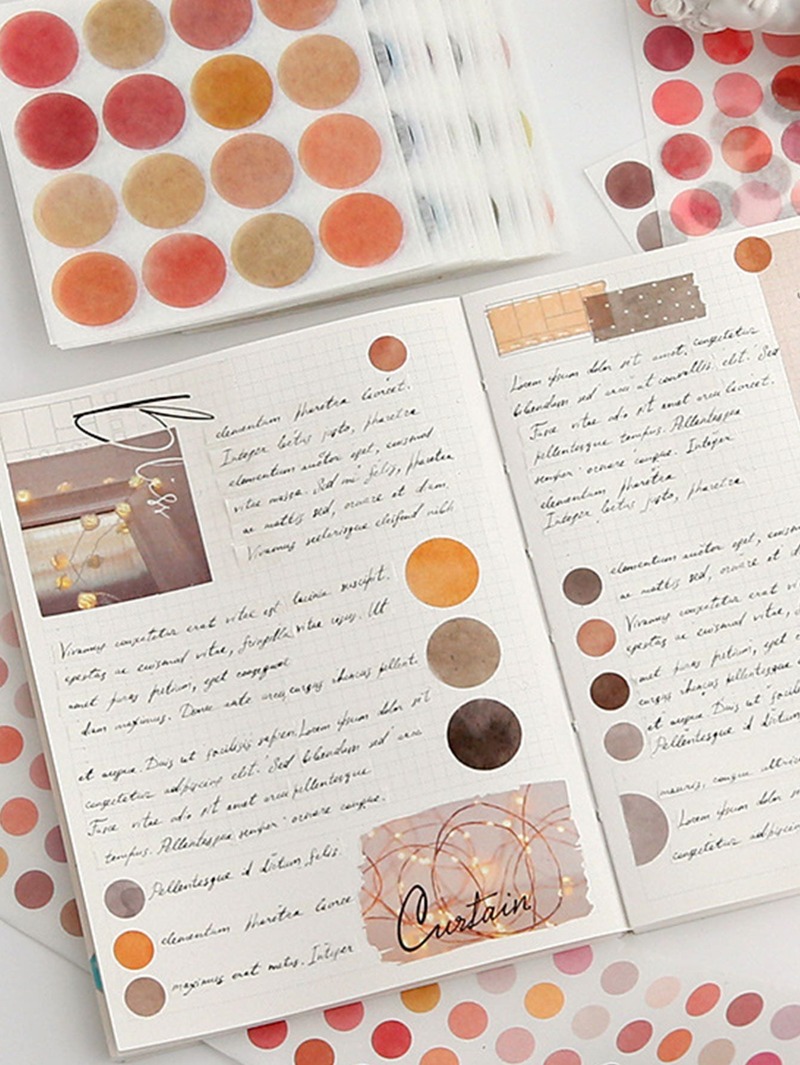 Bliss
elementum pharetra laoreet.
Integer lectus justo, pharetra
elementum auctor eget, euismod
vitae massa. Sed mi felis, pharetra
ac mattis sed, ornare et diam.
Vivamus scelerisque eleifend nibh
Vivamus consectetur erat vitae est lacinia suscipit.
egestas ac euismod vitae, fringilla vitae risus. Ut
amet purus pretium, eget consequat
diam maximus. Donec ante arcu, cursus rhoncus pellent.
et augue. Duis ut facilisis sapien. Lorem ipsum dolor sit
consectetur adipiscing elit. Sed bibendum sed arcu
Fusce vitae odio sit amet orci pellentesque
tempus. Pellentesque semper ornare congue.
Pellentesque id dictum felis.
elementum pharetra laoree
maximus erat metus. Integer
Curtain
Lorem ipsum dolor sit amet, consectetur
bibendum sed arcu ut convallis elit. Sed
Fusce vitae odio sit amet arcu laoreet.
pellentesque tempus. Pellentesque
semper ornare congue. Integer
elementum pharetra
Integer lectus justo, pharetra
elementum auctor eget,
ac mattis sed, ornare et d
Vivamus consectetur erat
egestas ac euismod vitae,
amet purus pretium, eget
cursus rhoncus pellentesque
et augue. Duis ut facilisis
Pellentesque id dictum
mauris, congue ultrici
Lorem ipsum dolor s
consectetur adipiscin